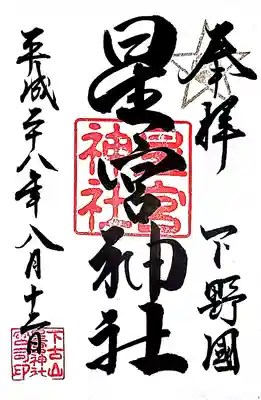 奉拝
下野國
星宮神社
星宮神社
平成二十八年八月十三日
下古山
星宮神社
宮司印